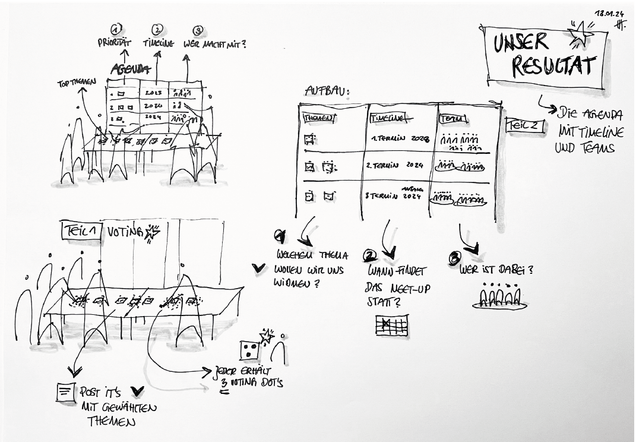 18.01.24
① ② ③
PRIORITÄT TIMELINE WER MACHT MIT?
AGENDA
TOP THEMEN
1. 2023
2. 2024
3. 2024
UNSER
RESULTAT
DIE AGENDA
MIT TIMELINE
UND TEAMS
TEIL 2
AUFBAU:
THEMEN TIMELINE TEAM
1. TERMIN 2023
2. TERMIN 2024
3. TERMIN 2024
TEIL 1 VOTING
1 WELCHEM THEMA
WOLLEN WIR UNS
WIDMEN?
2 WANN FINDET
DAS MEET-UP
STATT?
3 WER IST DABEI?
JEDER ERHÄLT
3 VOTING DOT'S
POST IT'S
MIT GEWÄHLTEN
THEMEN